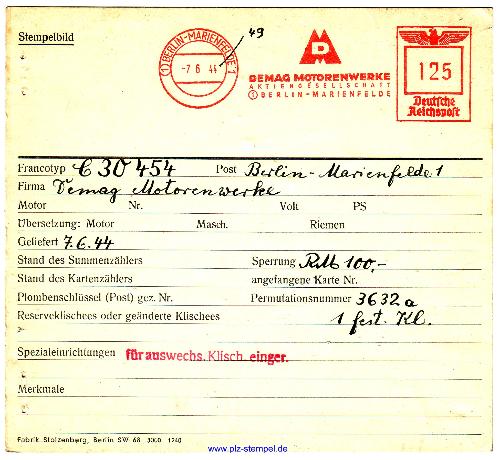 Stempelbild
BERLIN-MARIENFELDE 1
-7 6 44
49
D
DEMAG MOTORENWERKE
AKTIENGESELLSCHAFT
BERLIN-MARIENFELDE
125
Deutsche
Reichspost
Francotyp C 30 454 Post Berlin-Marienfelde 1
Firma Demag Motorenwerke
Motor Nr. Volt PS
Übersetzung: Motor Masch. Riemen
Geliefert 7.6.44
Stand des Summenzählers Sperrung RM 100,-
Stand des Kartenzählers angefangene Karte Nr.
Plombenschlüssel (Post) gez. Nr. Permutationsnummer 3632a
Reserveklischees oder geänderte Klischees 1 fest. Kl.
Spezialeinrichtungen für auswechs. Klisch. einger.
Merkmale
Fabrik Stolzenberg, Berlin SW 68 3000 1240
www.plz-stempel.de